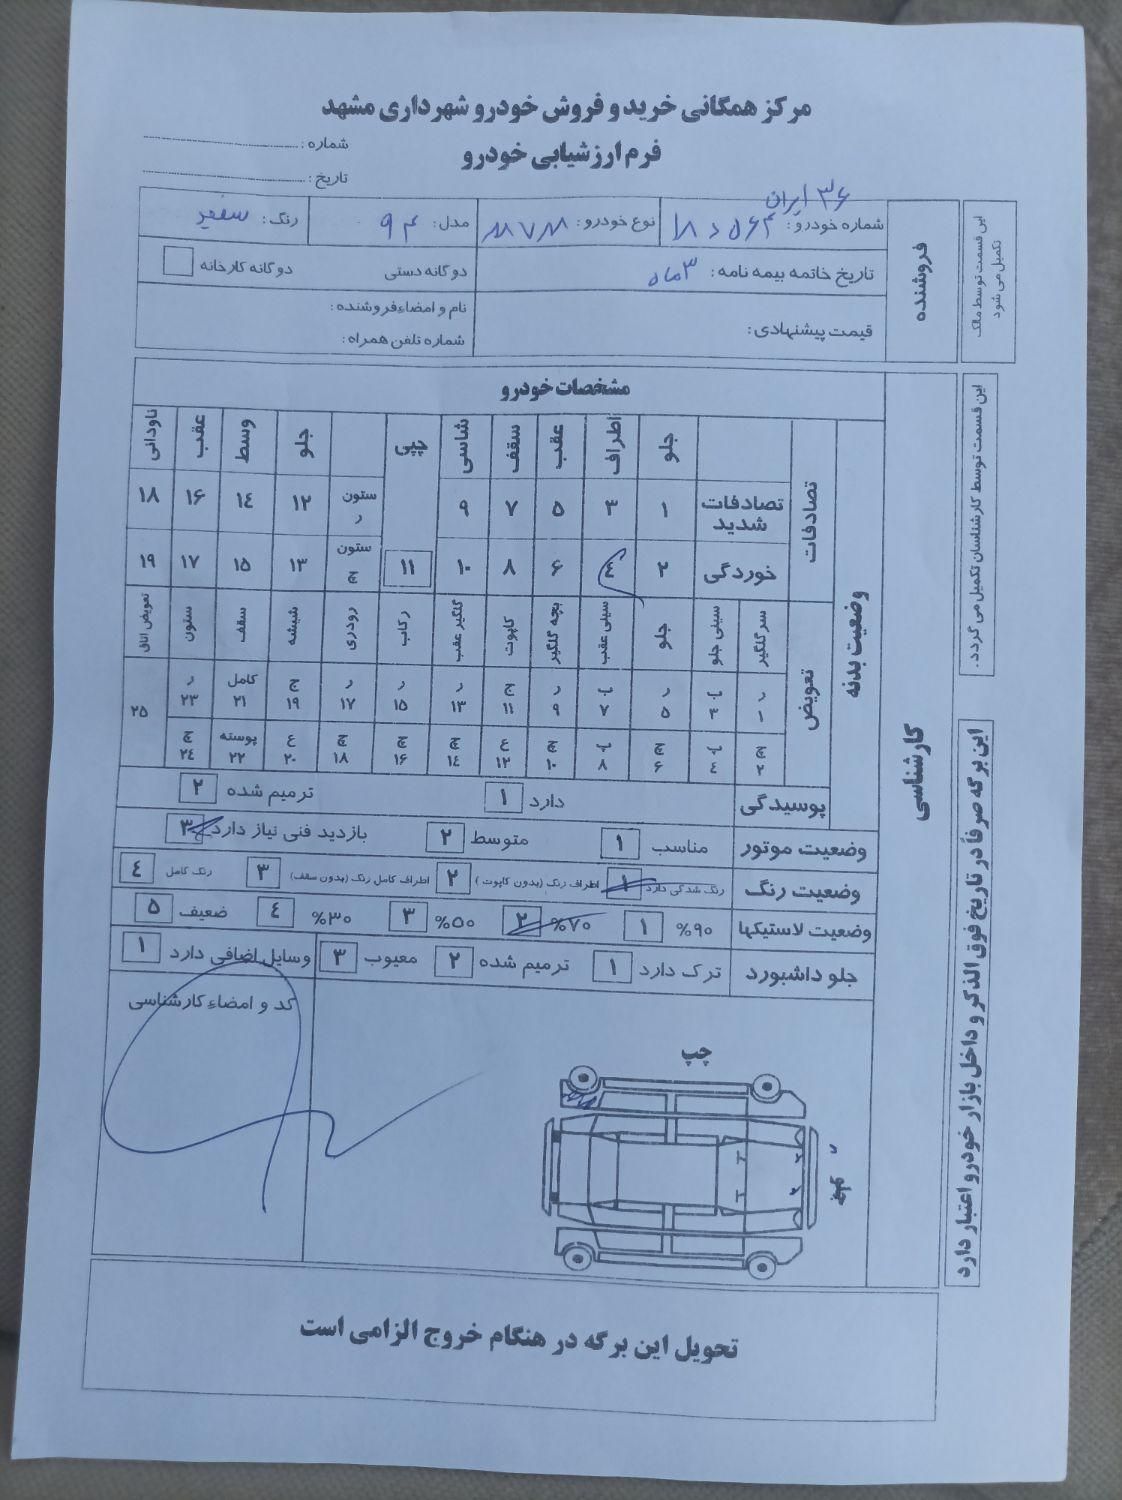 مرکز همگانی خرید و فروش خودرو شهرداری مشهد
فرم ارزشیابی خودرو
شماره :
تاریخ :
این قسمت توسط مالک تکمیل می شود
فروشنده
۳۶ ایران
شماره خودرو :
نوع خودرو :
مدل : ۹۴
رنگ : سفید
تاریخ خاتمه بیمه نامه : ۳ ماه
دوگانه دستی
دوگانه کارخانه
قیمت پیشنهادی :
نام و امضاء فروشنده :
شماره تلفن همراه :
این قسمت توسط کارشناسان تکمیل می گردد .
کارشناسی
مشخصات خودرو
وضعیت بدنه
تصادفات
جلو اطراف عقب سقف شاسی پلپی جلو وسط عقب ناودانی
تصادفات شدید ۱ ۳ ۵ ۷ ۹ ستون ر ۱۲ ۱۴ ۱۶ ۱۸
خوردگی ۲ ۴ ۶ ۸ ۱۰ ۱۱ ستون چ ۱۳ ۱۵ ۱۷ ۱۹
تعویض
سر گلگیر سینی جلو جلو سینی عقب بچه گلگیر کاپوت گلگیر عقب رکاب رودری شیشه سقف ستون تعویض اتاق
ر ۱ ۳ ر ۵ ۷ ر ۹ چ ۱۱ ر ۱۳ ر ۱۵ ر ۱۷ چ ۱۹ کامل ۲۱ ر ۲۳ ۲۵
چ ۲ ۴ چ ۶ ۸ چ ۱۰ ع ۱۲ چ ۱۴ چ ۱۶ چ ۱۸ ع ۲۰ پوسته ۲۲ چ ۲۴
پوسیدگی دارد ۱ ترمیم شده ۲
وضعیت موتور مناسب ۱ متوسط ۲ بازدید فنی نیاز دارد ۳
وضعیت رنگ رنگ شدگی دارد ۱ اطراف رنگ (بدون کاپوت) ۲ اطراف کامل رنگ (بدون سقف) ۳ رنگ کامل ۴
وضعیت لاستیکها ۹۰% ۱ ۷۰% ۲ ۵۰% ۳ ۳۰% ۴ ضعیف ۵
جلو داشبورد ترک دارد ۱ ترمیم شده ۲ معیوب ۳ وسایل اضافی دارد ۱
کد و امضاء کارشناسی
چپ
این برگه صرفاً در تاریخ فوق الذکر و داخل بازار خودرو اعتبار دارد
تحویل این برگه در هنگام خروج الزامی است